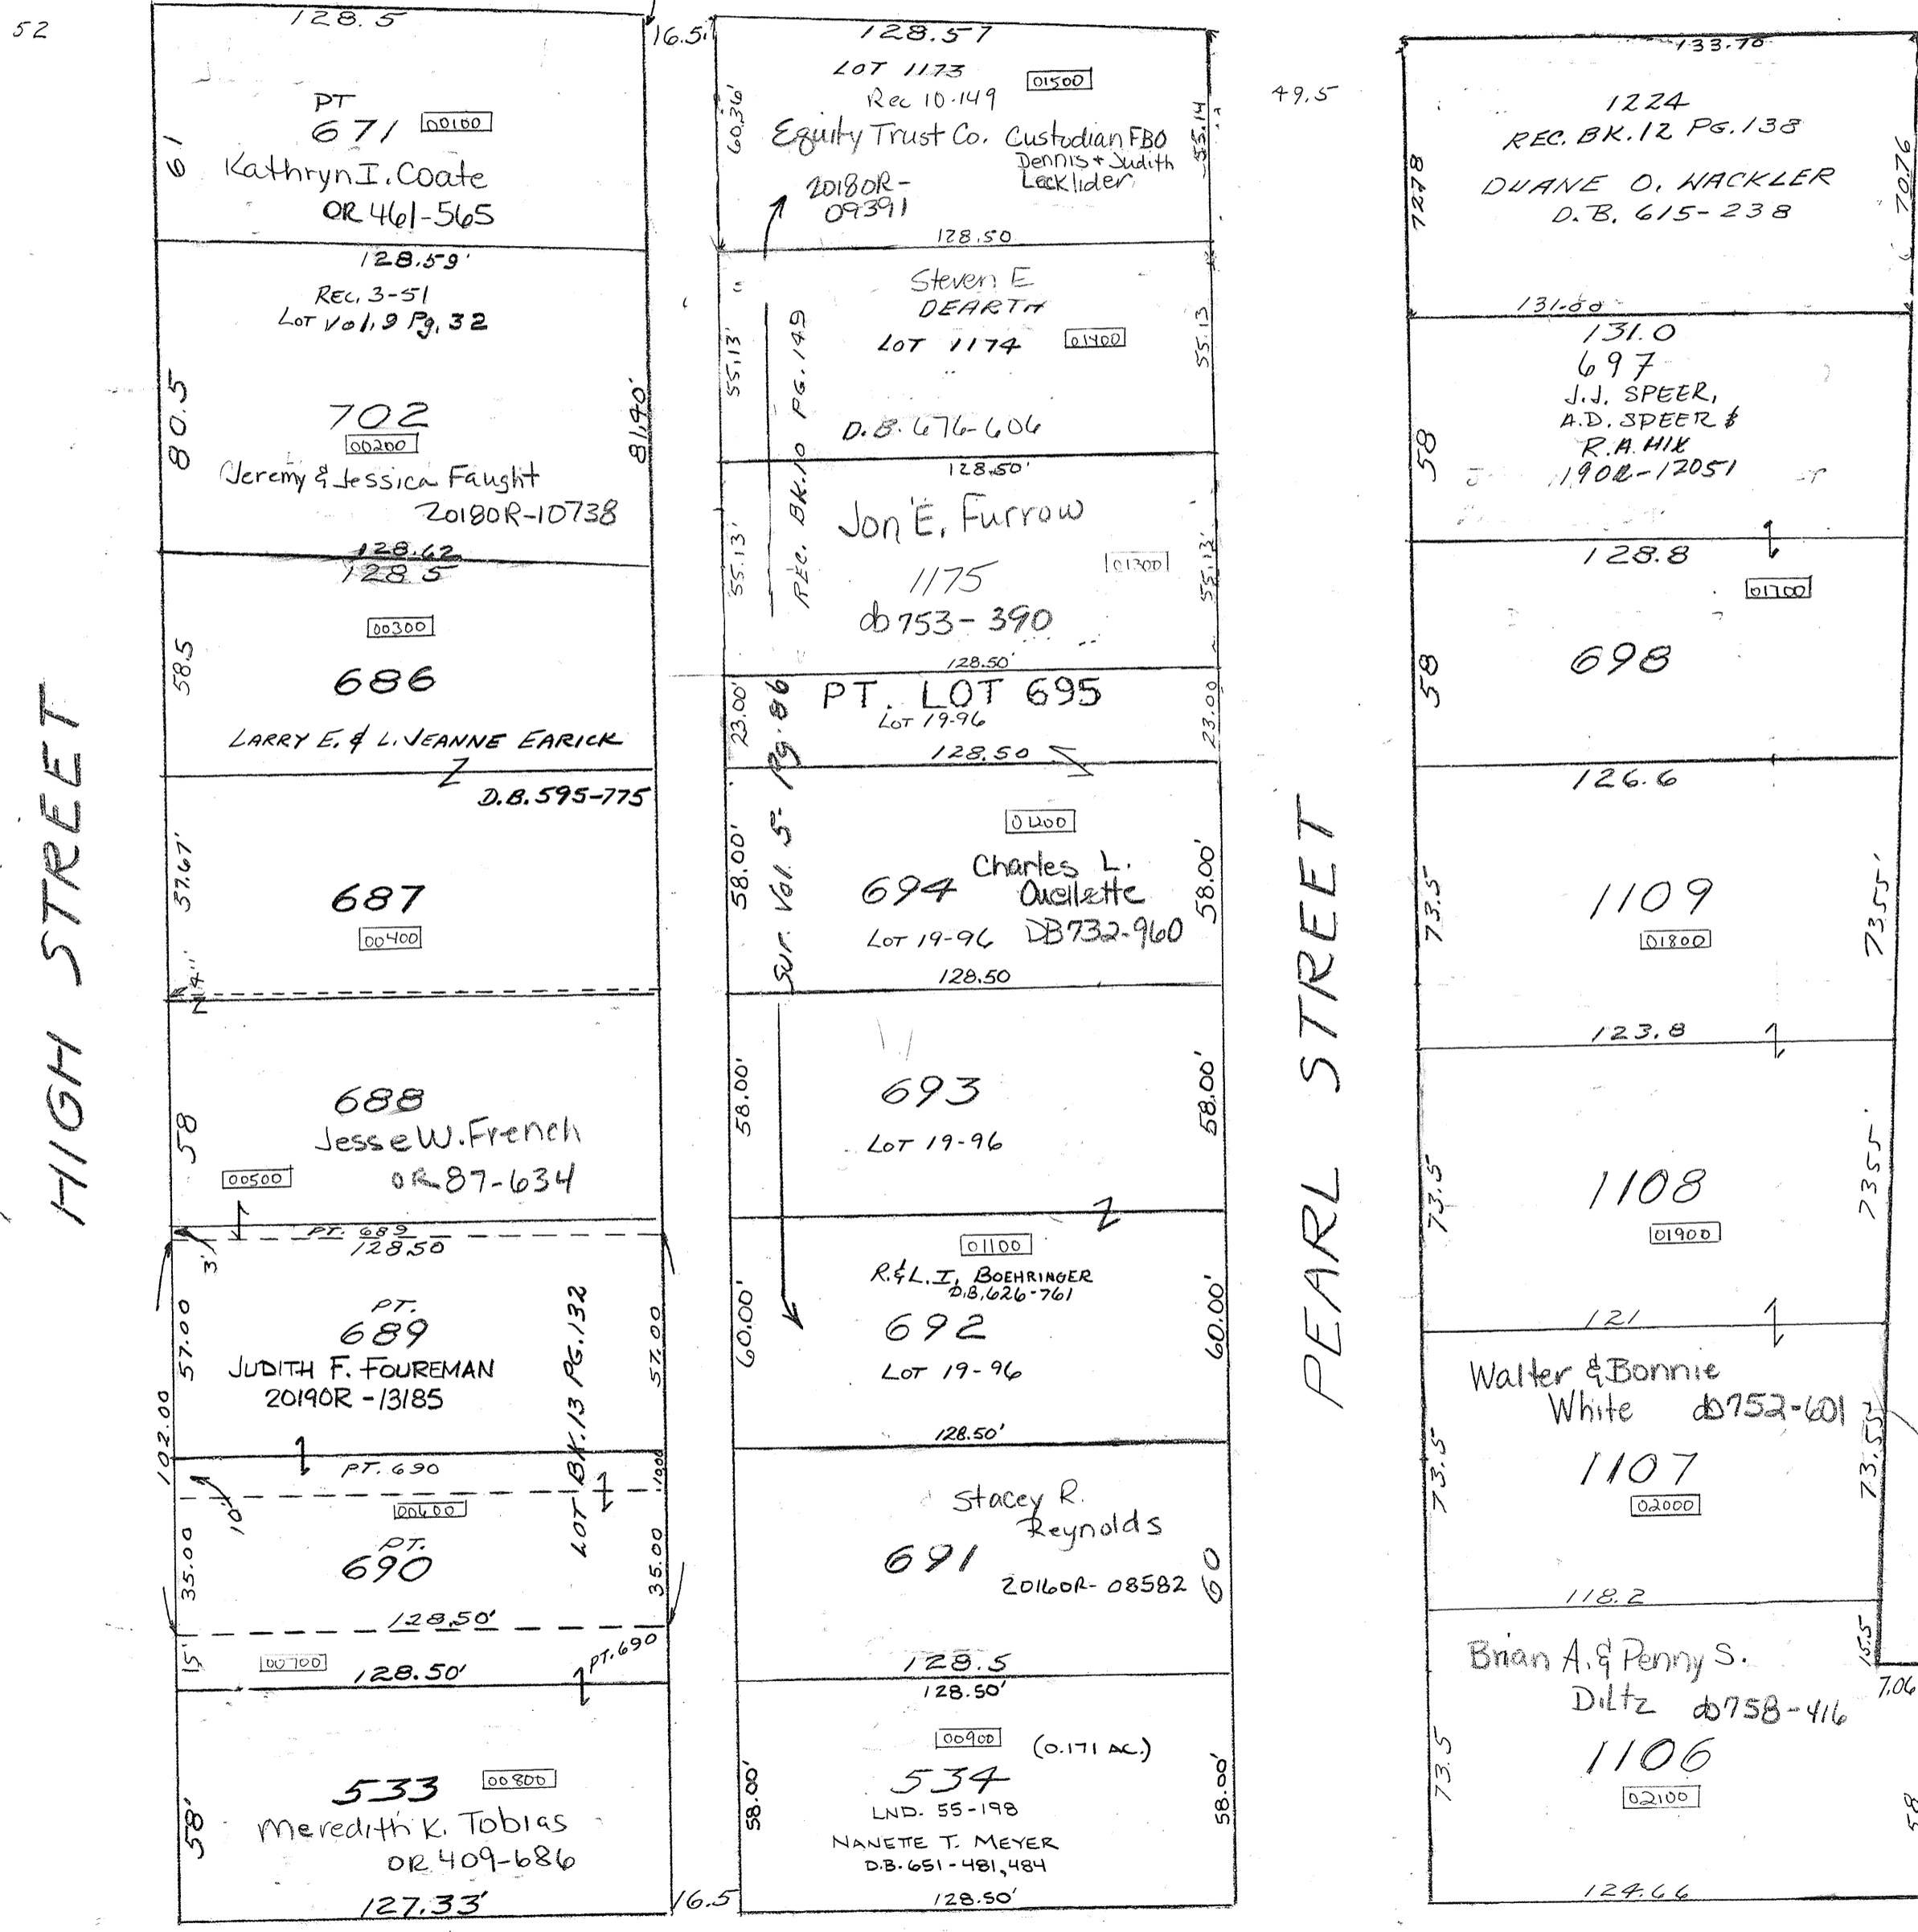 52
HIGH STREET
128.5
PT
671 00100
61
Kathryn I. Coate
OR 461-565
128.59'
REC. 3-51
LOT Vol. 9 Pg. 32
80.5
81.40'
702
00200
Jeremy & Jessica Faught
2018OR-10738
128.62
128.5
00300
58.5
686
LARRY E. & L. JEANNE EARICK
D.B. 595-775
57.67'
687
00400
4"
688
58
Jesse W. French
00500
OR 87-634
PT. 689
128.50
3'
PT.
689
57.00
57.00
JUDITH F. FOUREMAN
2019OR-13185
102.00
LOT BK.13 PG.132
PT. 690
10.00
10'
00600
PT.
690
35.00
35.00
128.50'
15'
00700
128.50'
PT. 690
533 00800
58'
Meredith K. Tobias
OR 409-686
127.33'
16.5'
16.5
128.57
LOT 1173 01500
Rec 10-149
60.36'
55.14
Equity Trust Co. Custodian FBO
Dennis + Judith
Lecklider
2018OR-
09391
128.50
Steven E
DEARTH
LOT 1174 01400
55.13'
55.13
D.B. 676-606
REC. BK.10 PG.149
128.50'
Jon E. Furrow
1175
01300
55.13'
55.13'
db 753-390
128.50'
PT. LOT 695
LOT 19-96
23.00'
23.00
128.50
Sur. Vol. 5- Pg. 86
01200
58.00'
58.00'
694
Charles L.
Ouellette
DB 732-960
LOT 19-96
128.50
58.00'
58.00'
693
LOT 19-96
01100
R. & L. I. BOEHRINGER
D.B. 626-761
60.00'
60.00'
692
LOT 19-96
128.50'
Stacey R.
Reynolds
691
2016OR-08582
60
128.5
128.50'
00900 (0.171 AC.)
534
58.00'
58.00'
LND. 55-198
NANETTE T. MEYER
D.B. 651-481, 484
128.50'
49.5
PEARL STREET
133.70
1224
REC. BK. 12 PG. 138
72.78
70.76
DUANE O. WACKLER
D.B. 615-238
131.00
131.0
697
J.J. SPEER,
A.D. SPEER &
R.A. HIX
58
190R-12051
128.8
01700
698
58
126.6
1109
01800
73.5
73.55'
123.8
1108
01900
73.5
73.55'
121
Walter & Bonnie
White db 752-601
1107
02000
73.5
73.55'
118.2
15.5
7.06
Brian A. & Penny S.
Diltz db 758-416
1106
02100
73.5
58
124.66